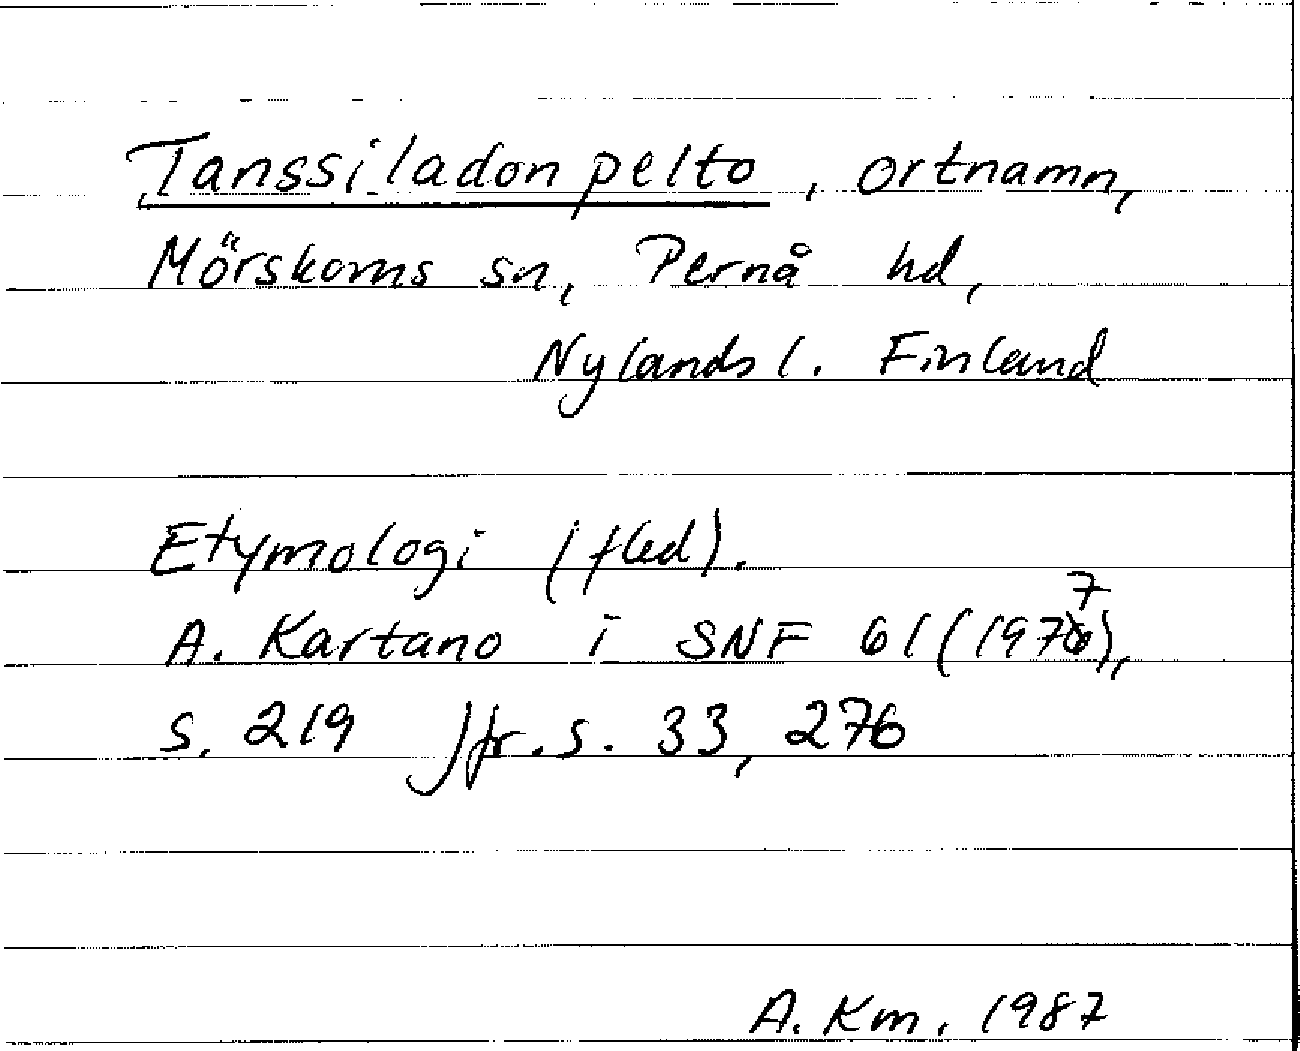 Tanssiladon pelto, ortnamn,
Mörskoms sn, Pernå hd,
Nylands l. Finland
Etymologi (fled).
A. Kartano i SNF 61 (1977),
s. 219 Jfr. s. 33, 276
A. Km. 1987